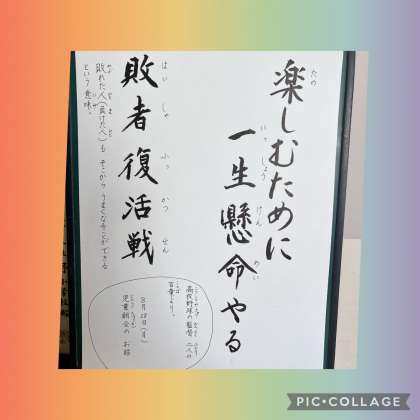 たの
楽しむために
いっしょう けんめい
一生懸命やる
はい しゃ ふっ かつ せん
敗者復活戦
敗れた人(負けた人)も そこから うまくなることができる
という意味。
高校野球の監督 二人の
言葉より。
8月28日(月)
児童朝会の お話
PIC•COLLAGE